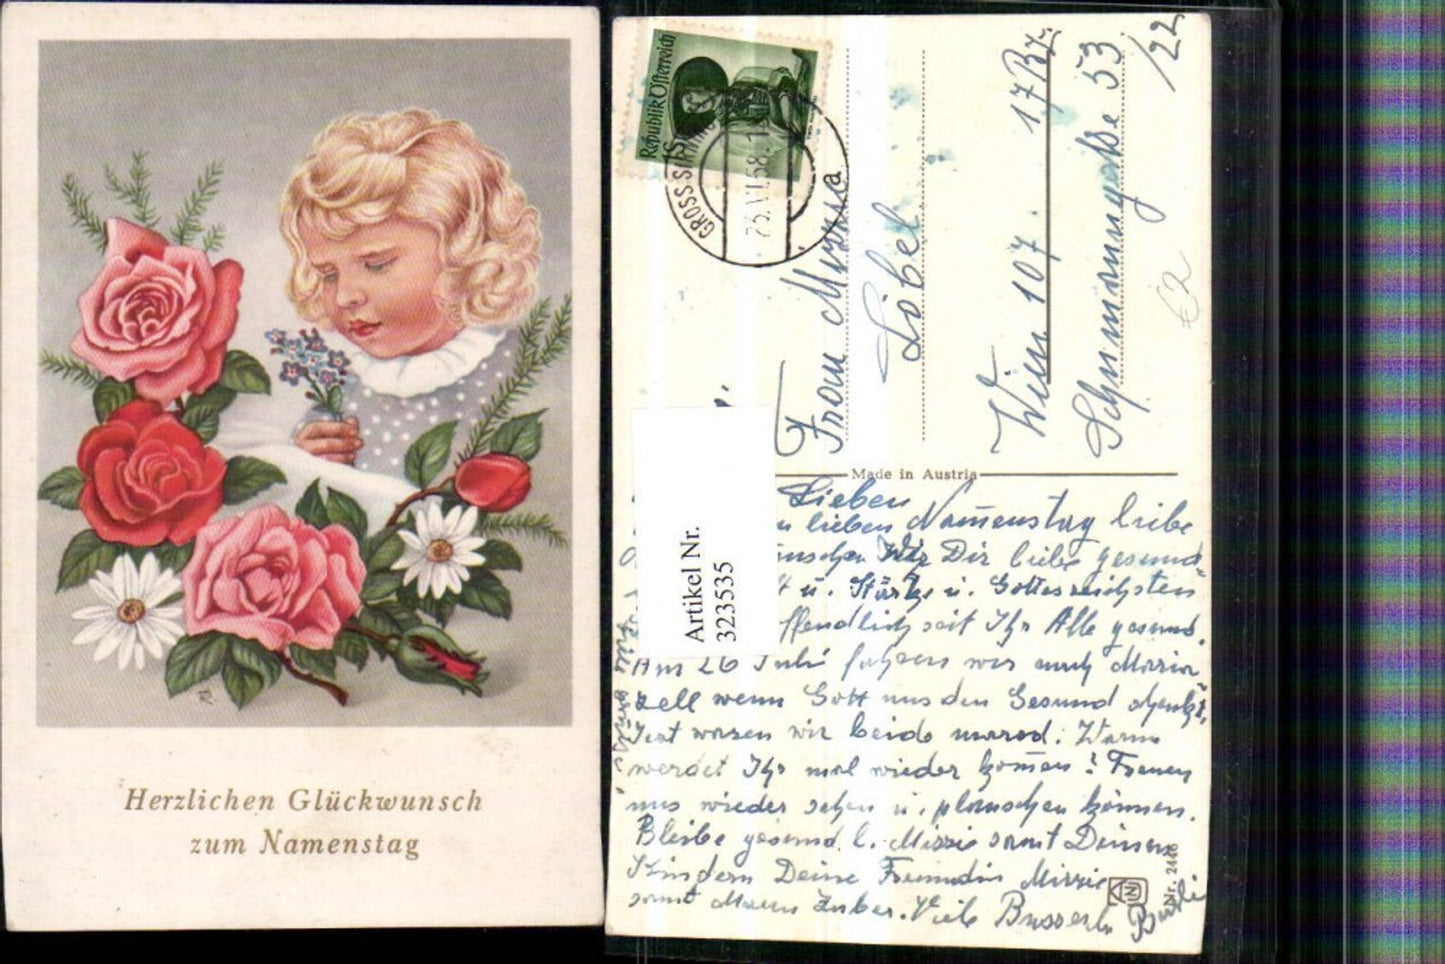 Herzlichen Glückwunsch
zum Namenstag
Republik Österreich
GROSS
23.VI.58
Frau Mizzia
Löbel
Wien 107. 17Bz.
53
/22
€2
Made in Austria
Artikel Nr.
323535
Lieben
lieben Namenstag liebe
wünschen Wir Dir liebe gesund
u. Stärke u. Gottes reichsten
hoffendlich seit Ihr Alle gesund.
Am 26 Juli fahren wir nach Maria
zell wenn Gott uns den Gesund schenkt,
Jezt waren wir beide marod. Wann
werdet Ihr mal wieder kommen? Freuen
uns wieder sehen u. plauschen können.
Bleibe gesund l. Mizzi samt Deinen
Kindern Deine Freundin Mizzi
samt Mann Viele Busserln
Nr. 2446